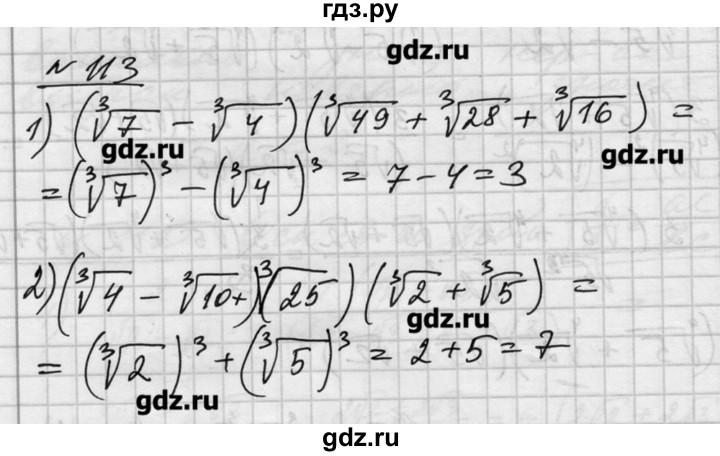 гдз.ру
gdz.ru
№ 113
1) (∛7 − ∛4)(∛49 + ∛28 + ∛16) =
gdz.ru
gdz.ru
= (∛7)³ − (∛4)³ = 7 − 4 = 3
2) (∛4 − ∛10+)∛(25) (∛2 + ∛5) =
gdz.ru
= (∛2)³ + (∛5)³ = 2 + 5 = 7
gdz.ru
gdz.ru